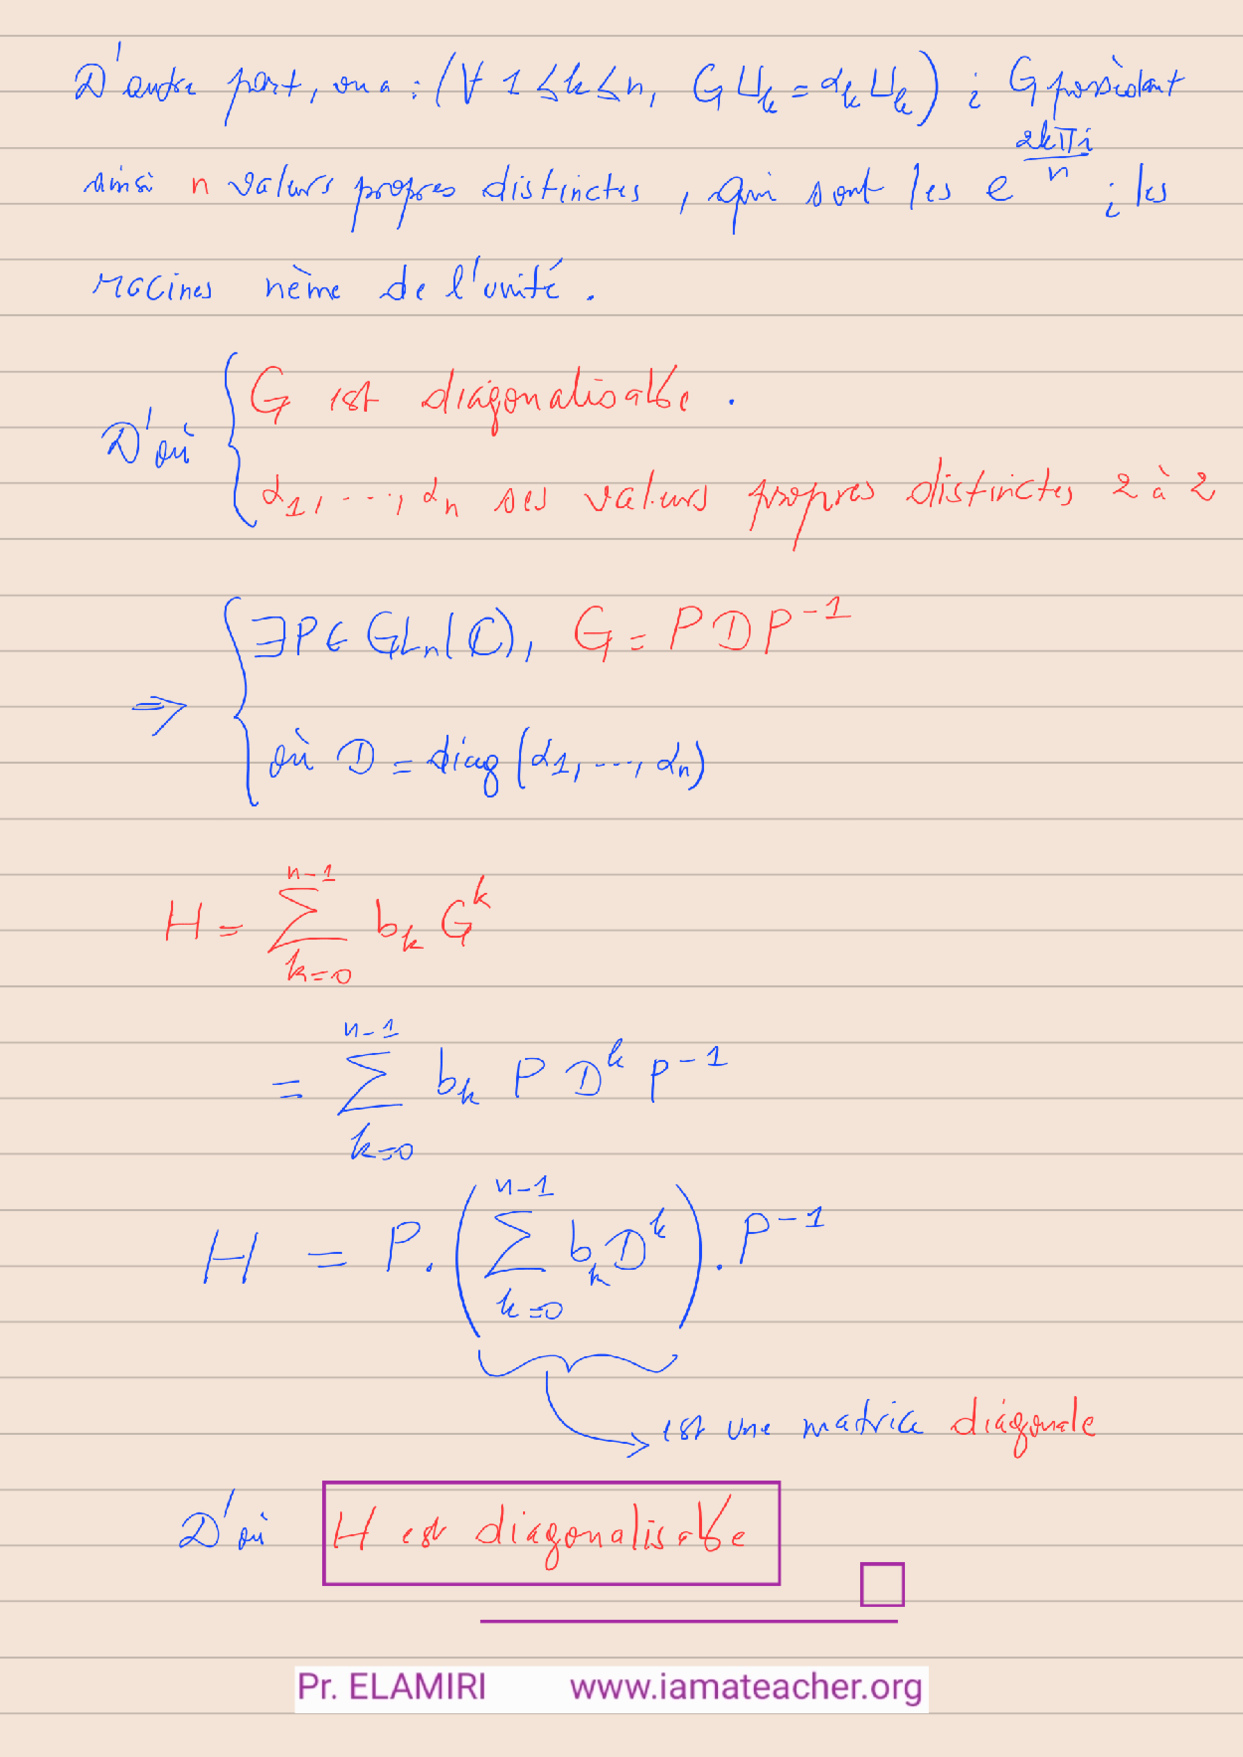 D'autre part, on a : (∀ 1 ≤ k ≤ n, G U_k = α_k U_k) ; G possèdant
ainsi n valeurs propres distinctes, qui sont les e^{2kπi/n} ; les
racines nème de l'unité.
D'où { G est diagonalisable.
α_1, ..., α_n ses valeurs propres distinctes 2 à 2
⇒ { ∃ P ∈ GL_n(ℂ), G = P D P^{-1}
où D = diag(α_1, ..., α_n)
H = ∑_{k=0}^{n-1} b_k G^k
= ∑_{k=0}^{n-1} b_k P D^k P^{-1}
H = P. (∑_{k=0}^{n-1} b_k D^k) . P^{-1}
est une matrice diagonale
D'où H est diagonalisable
Pr. ELAMIRI www.iamateacher.org